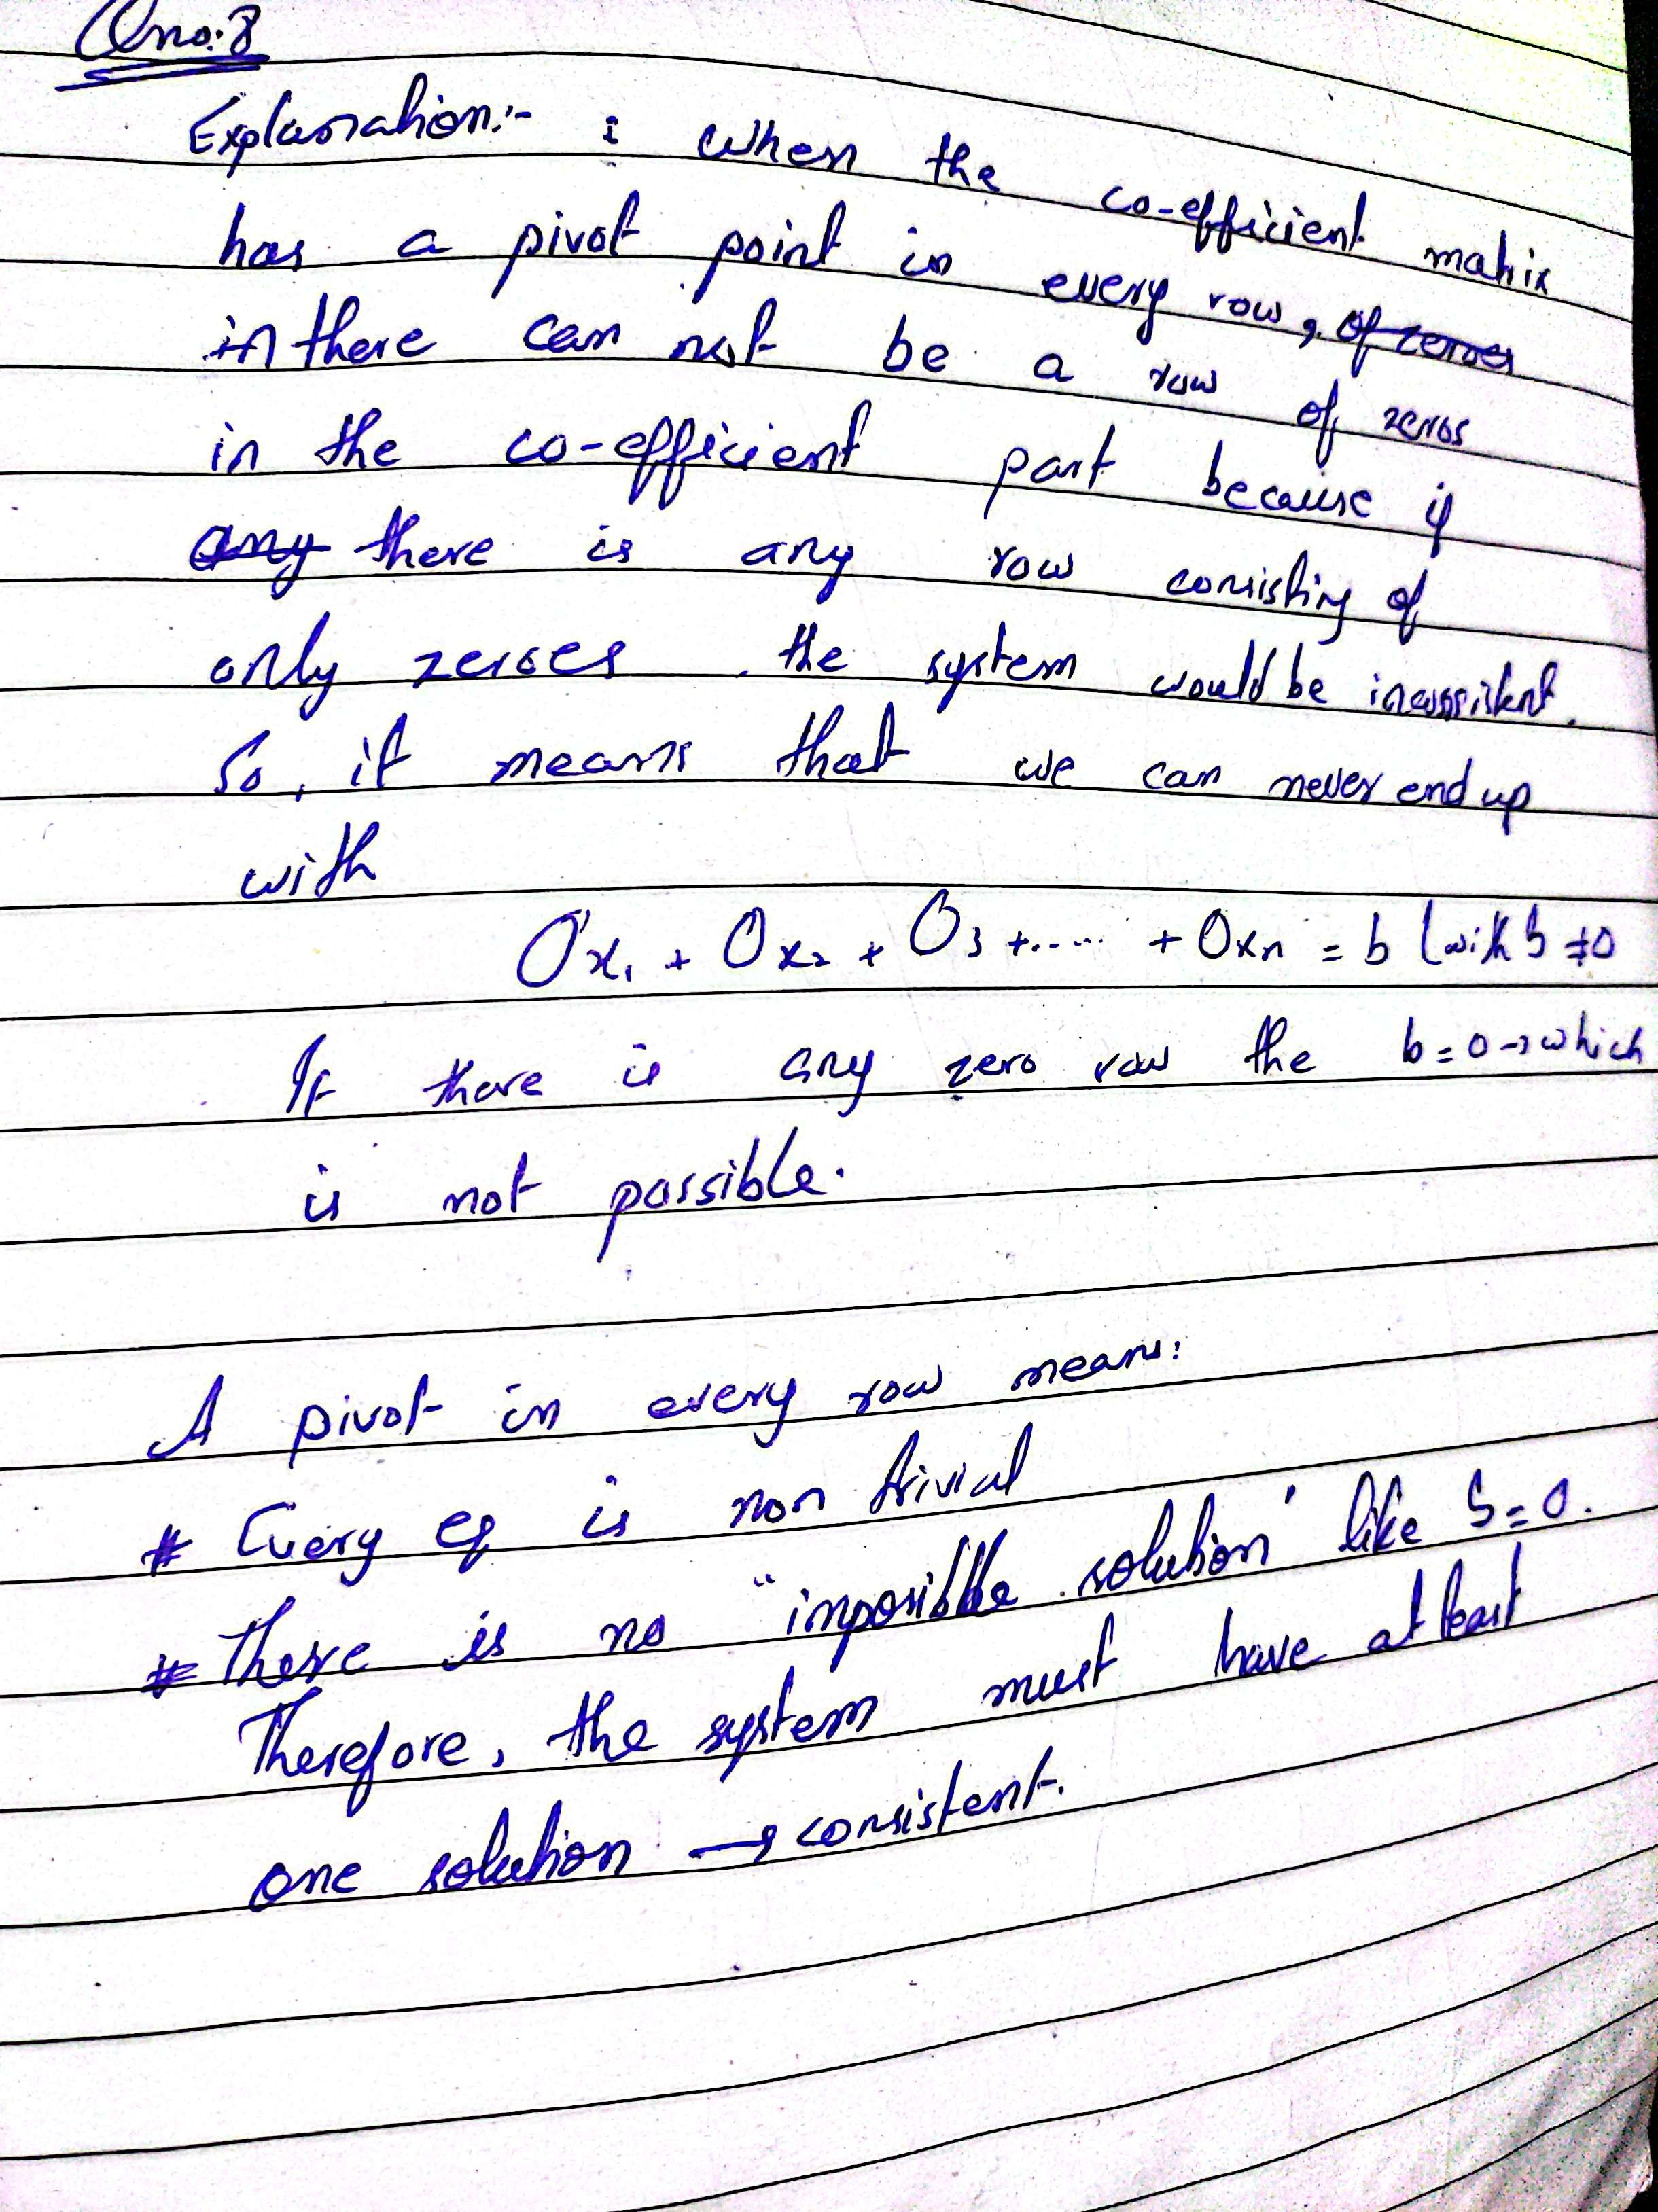 Qno.8
Explanation:- : when the co-efficient matrix
has a pivot point in every row, of zeroes
in there can not be a row of zeros
in the co-efficient part because if
any there is any row consisting of
only zeroes the system would be inconsistent.
So, it means that we can never end up
with
0x₁ + 0x₂ + 0₃ +..... + 0xn = b (with b ≠ 0
If there is any zero row the b = 0 → which
is not possible.
A pivot in every row means:
# Every eq is non trivial
# There is no "impossible solution' like 5 = 0.
Therefore, the system must have at least
one solution → consistent.